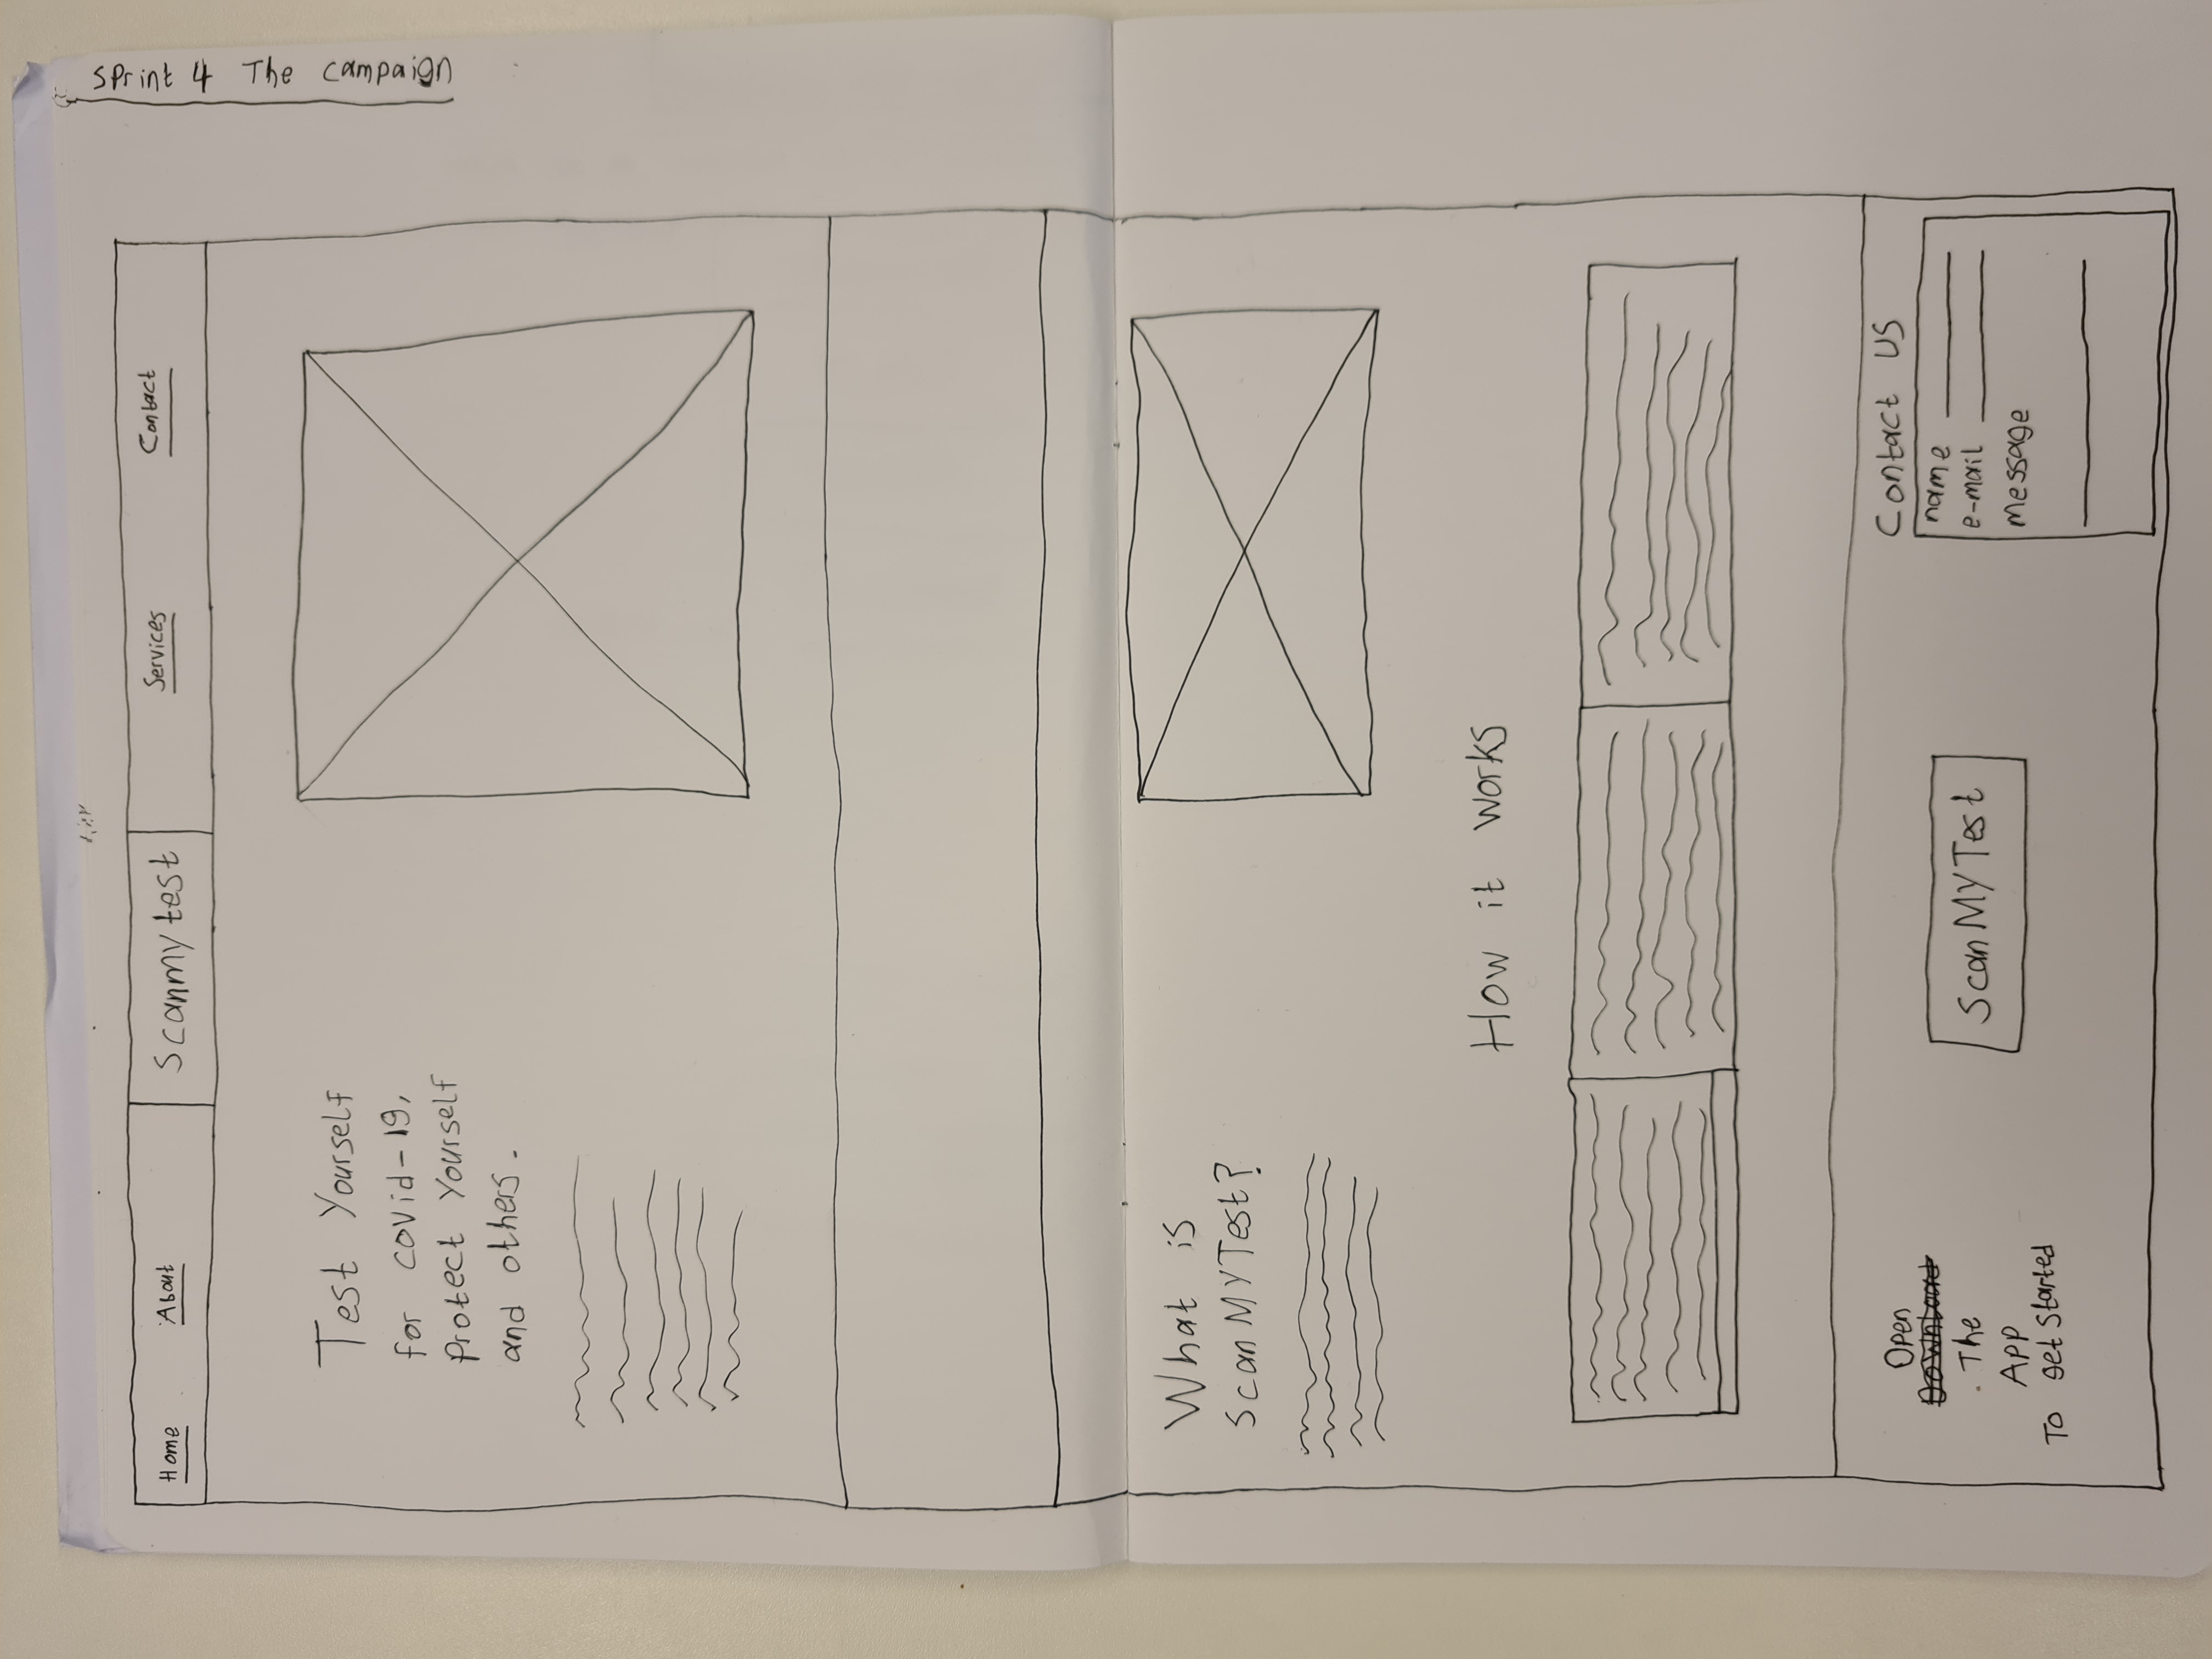 Sprint 4 The campaign
Home About Scanmytest Services Contact
Test Yourself
for covid-19,
Protect Yourself
and others.
What is
ScanMYTest?
How it works
Open
Download
The
App
To get started
ScanMYTest
Contact US
name
e-mail
message